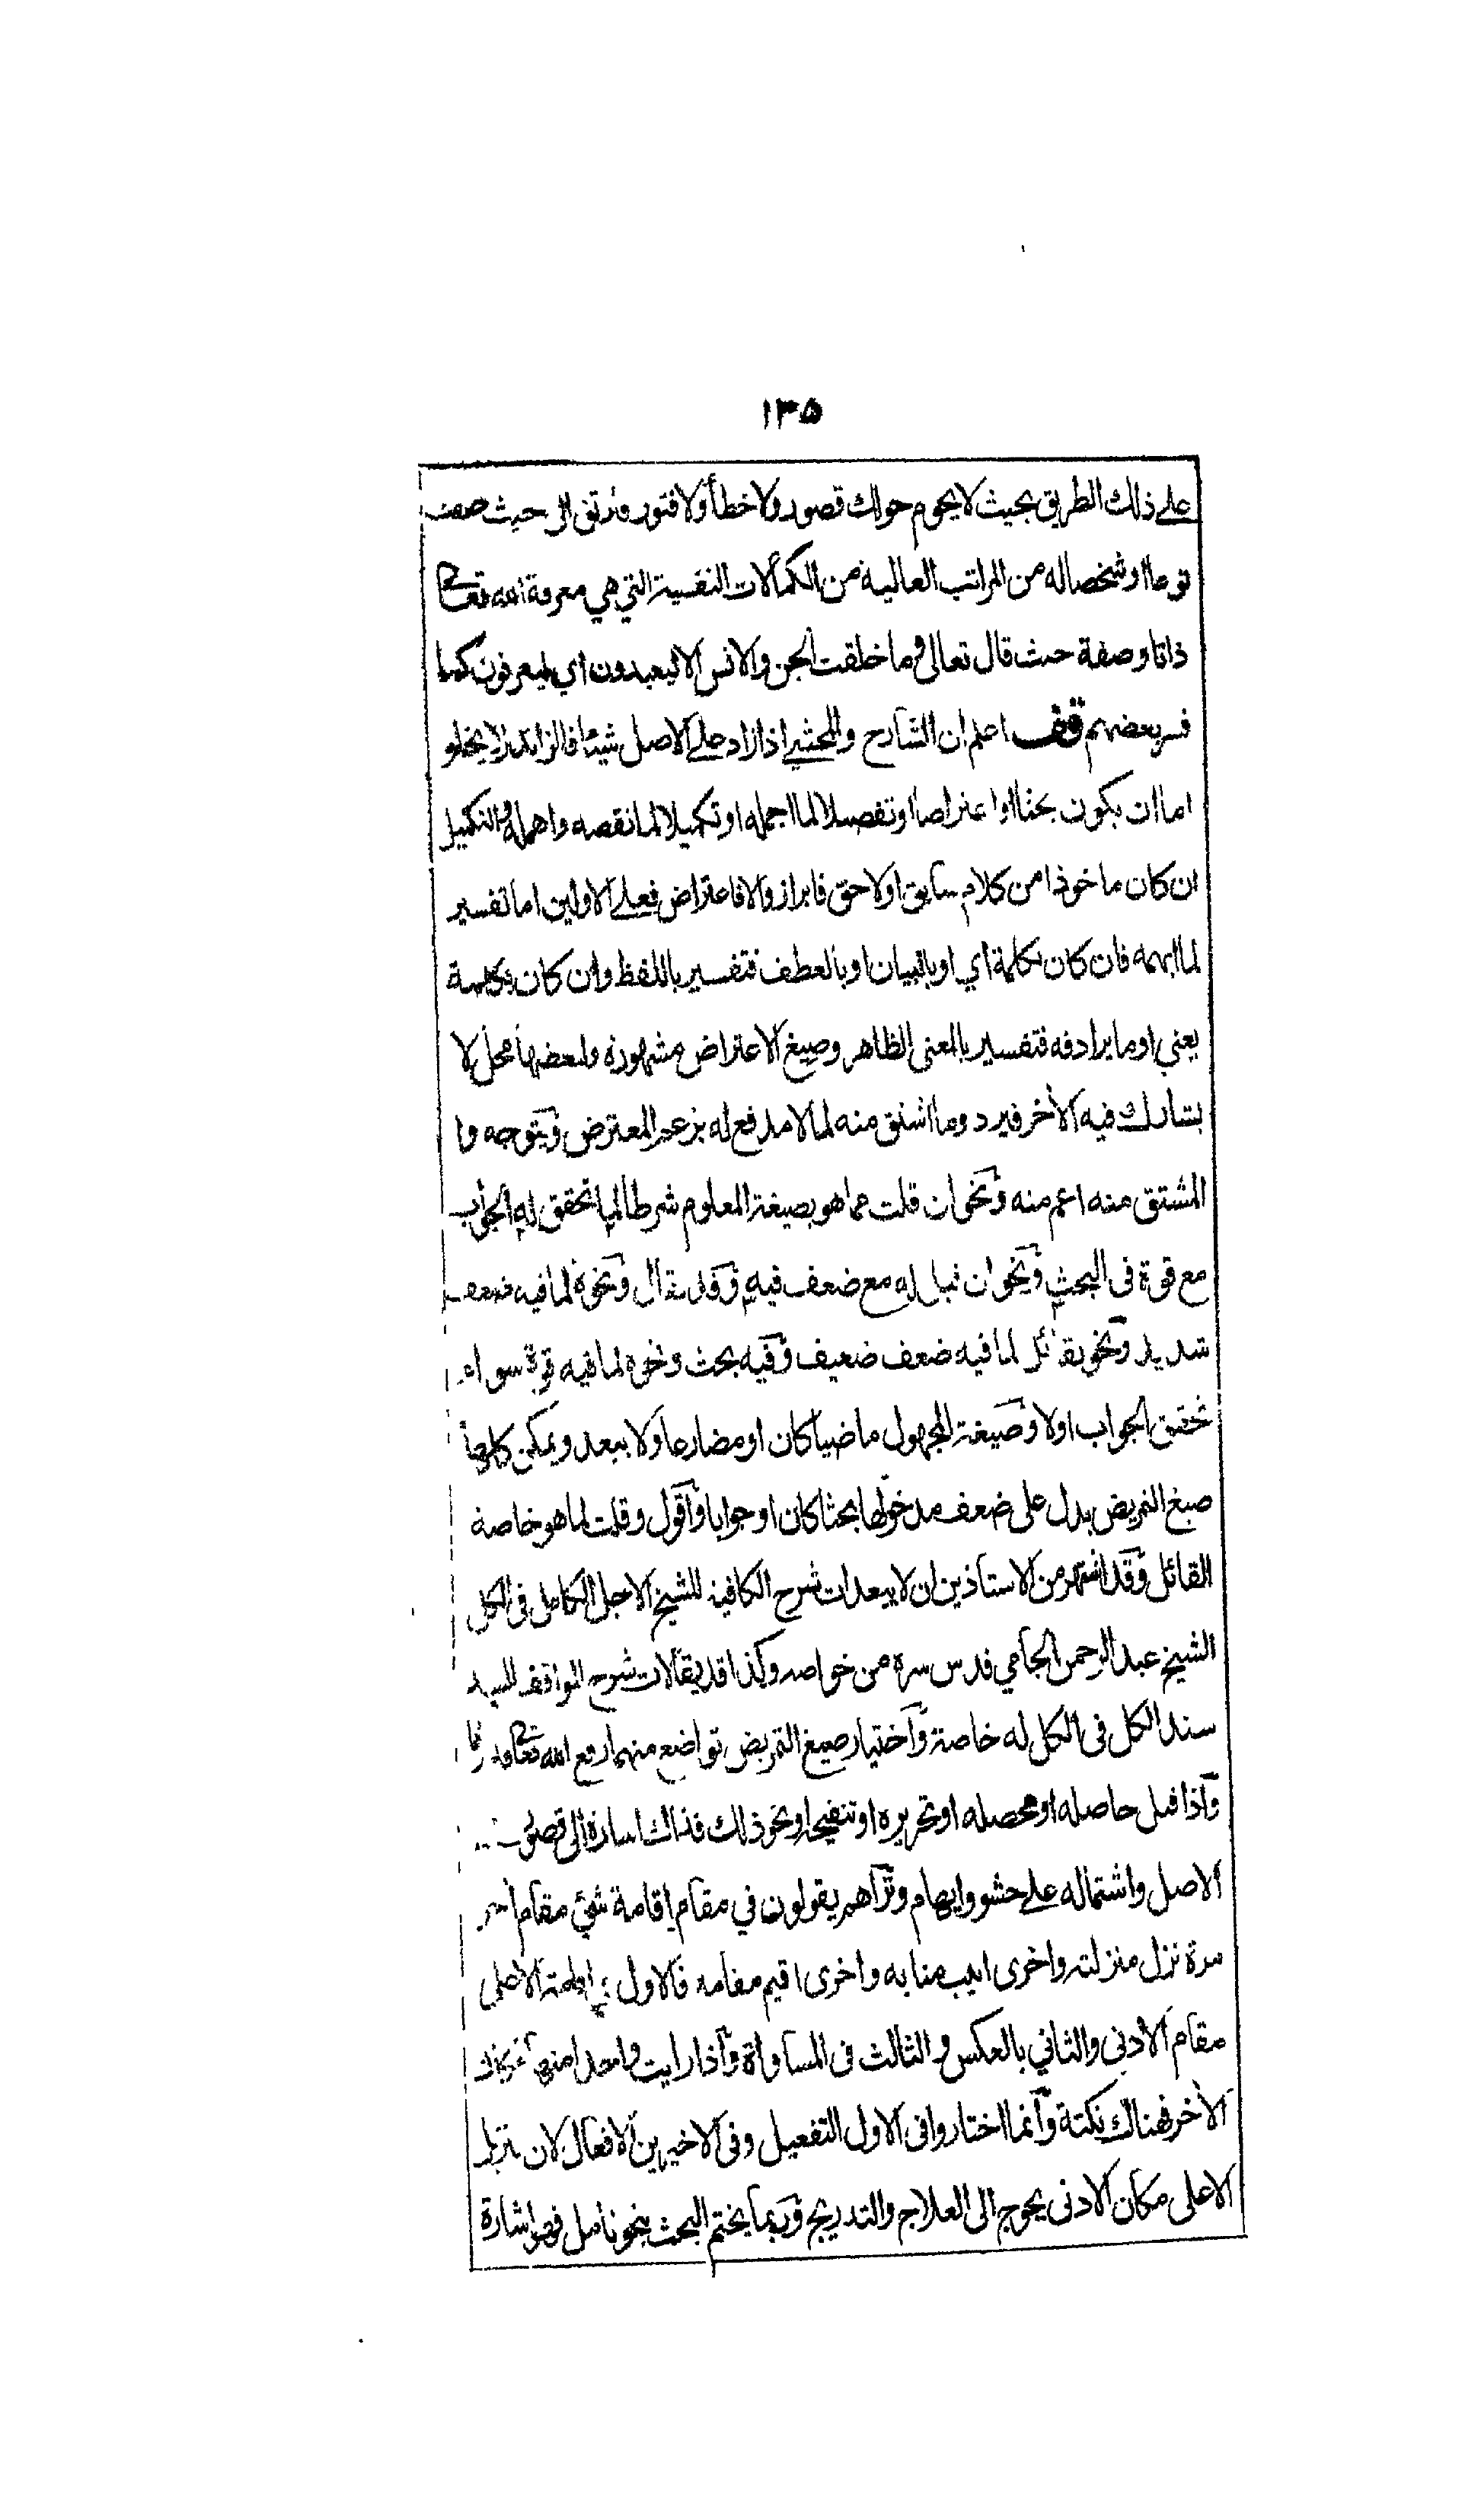 ١٣٥
على ذلك الطريق بحيث لا يحوم حولك قصور ولا خطأ ولا فتور فترتقى الى حيث
نوعا او شخصا له من المراتب العالية من الكمالات النفسية التي هي معرفة الله تعالى
ذاتا وصفة حيث قال تعالى وما خلقت الجن والانس الا ليعبدون اي ليعرفون كما
فسر بعضهم قف اعلم ان الشارح والمحشي اذا زاد على الاصل شيئا فالزائد لا يخلو
اما ان يكون بحثا او اعتراضا او تفصيلا لما اجمله او تكميلا لما نقصه واهمله والتكميل
ان كان ماخوذا من كلام سابق او لاحق فابراز والا فاعتراض فعلى الاولين اما تفسير
لما ابهمه فان كان بكلمة اي او بالبيان او بالعطف فتفسير باللفظ وان كان بكلمة
يعني او ما يرادفه فتفسير بالمعنى الظاهر وصيغ الاعتراض مشهورة ولبعضها محل لا
يشارك فيه الآخر فيرد وما اشتق منه لما لا مدفع له بزعم المعترض ويتوجه وما
المشتق منه اعم منه ونحو ان قلت مما هو بصيغة المعلوم شرطا لما تحقق له الجواب
مع قوة في البحث ونحو ان قيل له مع ضعف فيه وقد يقال ونحوه لما فيه ضعف
شديد ونحو يقائل لما فيه ضعف ضعيف وفيه بحث ونحوه لما فيه قوة سواء
تحقق الجواب اولا وصيغة المجهول ماضيا كان او مضارعا ولا يبعد ويمكن كلها
صيغ التمريض يدل على ضعف مدخولها بحثا كان او جوابا واقول وقلت لما هو خاصة
القائل وقد اشتهر من الاستاذين ان لا يبعد ان شرح الكافية للشيخ الاجل الكامل في الكل
الشيخ عبد الرحمن الجامي قدس سره من خواصه وكذا قد يقال ان شرح المواقف للسيد
سند الكل في الكل له خاصة واختيار صيغ التمريض تواضع منهما رفع الله تعالى
واذا قيل حاصله او محصله او تحريره او تنقيحه او نحو ذلك فذاك اشارة الى قصور
الاصل واشتماله على حشو وايهام وتراهم يقولون في مقام اقامة شيء مقام آخر
مرة نزل منزلته واخرى انيب منابه واخرى اقيم مقامه فالاول في اقامة الاعلى
مقام الادنى والثاني بالعكس والثالث في المساواة واذا رايت واحدا منها
الآخر فهناك نكتة وانما اختاروا في الاول التفعيل وفي الاخيرين الافعال لان تنزيل
الاعلى مكان الادنى يحوج الى العلاج والتدريج وربما يختم البحث بنحو تامل فهو اشارة